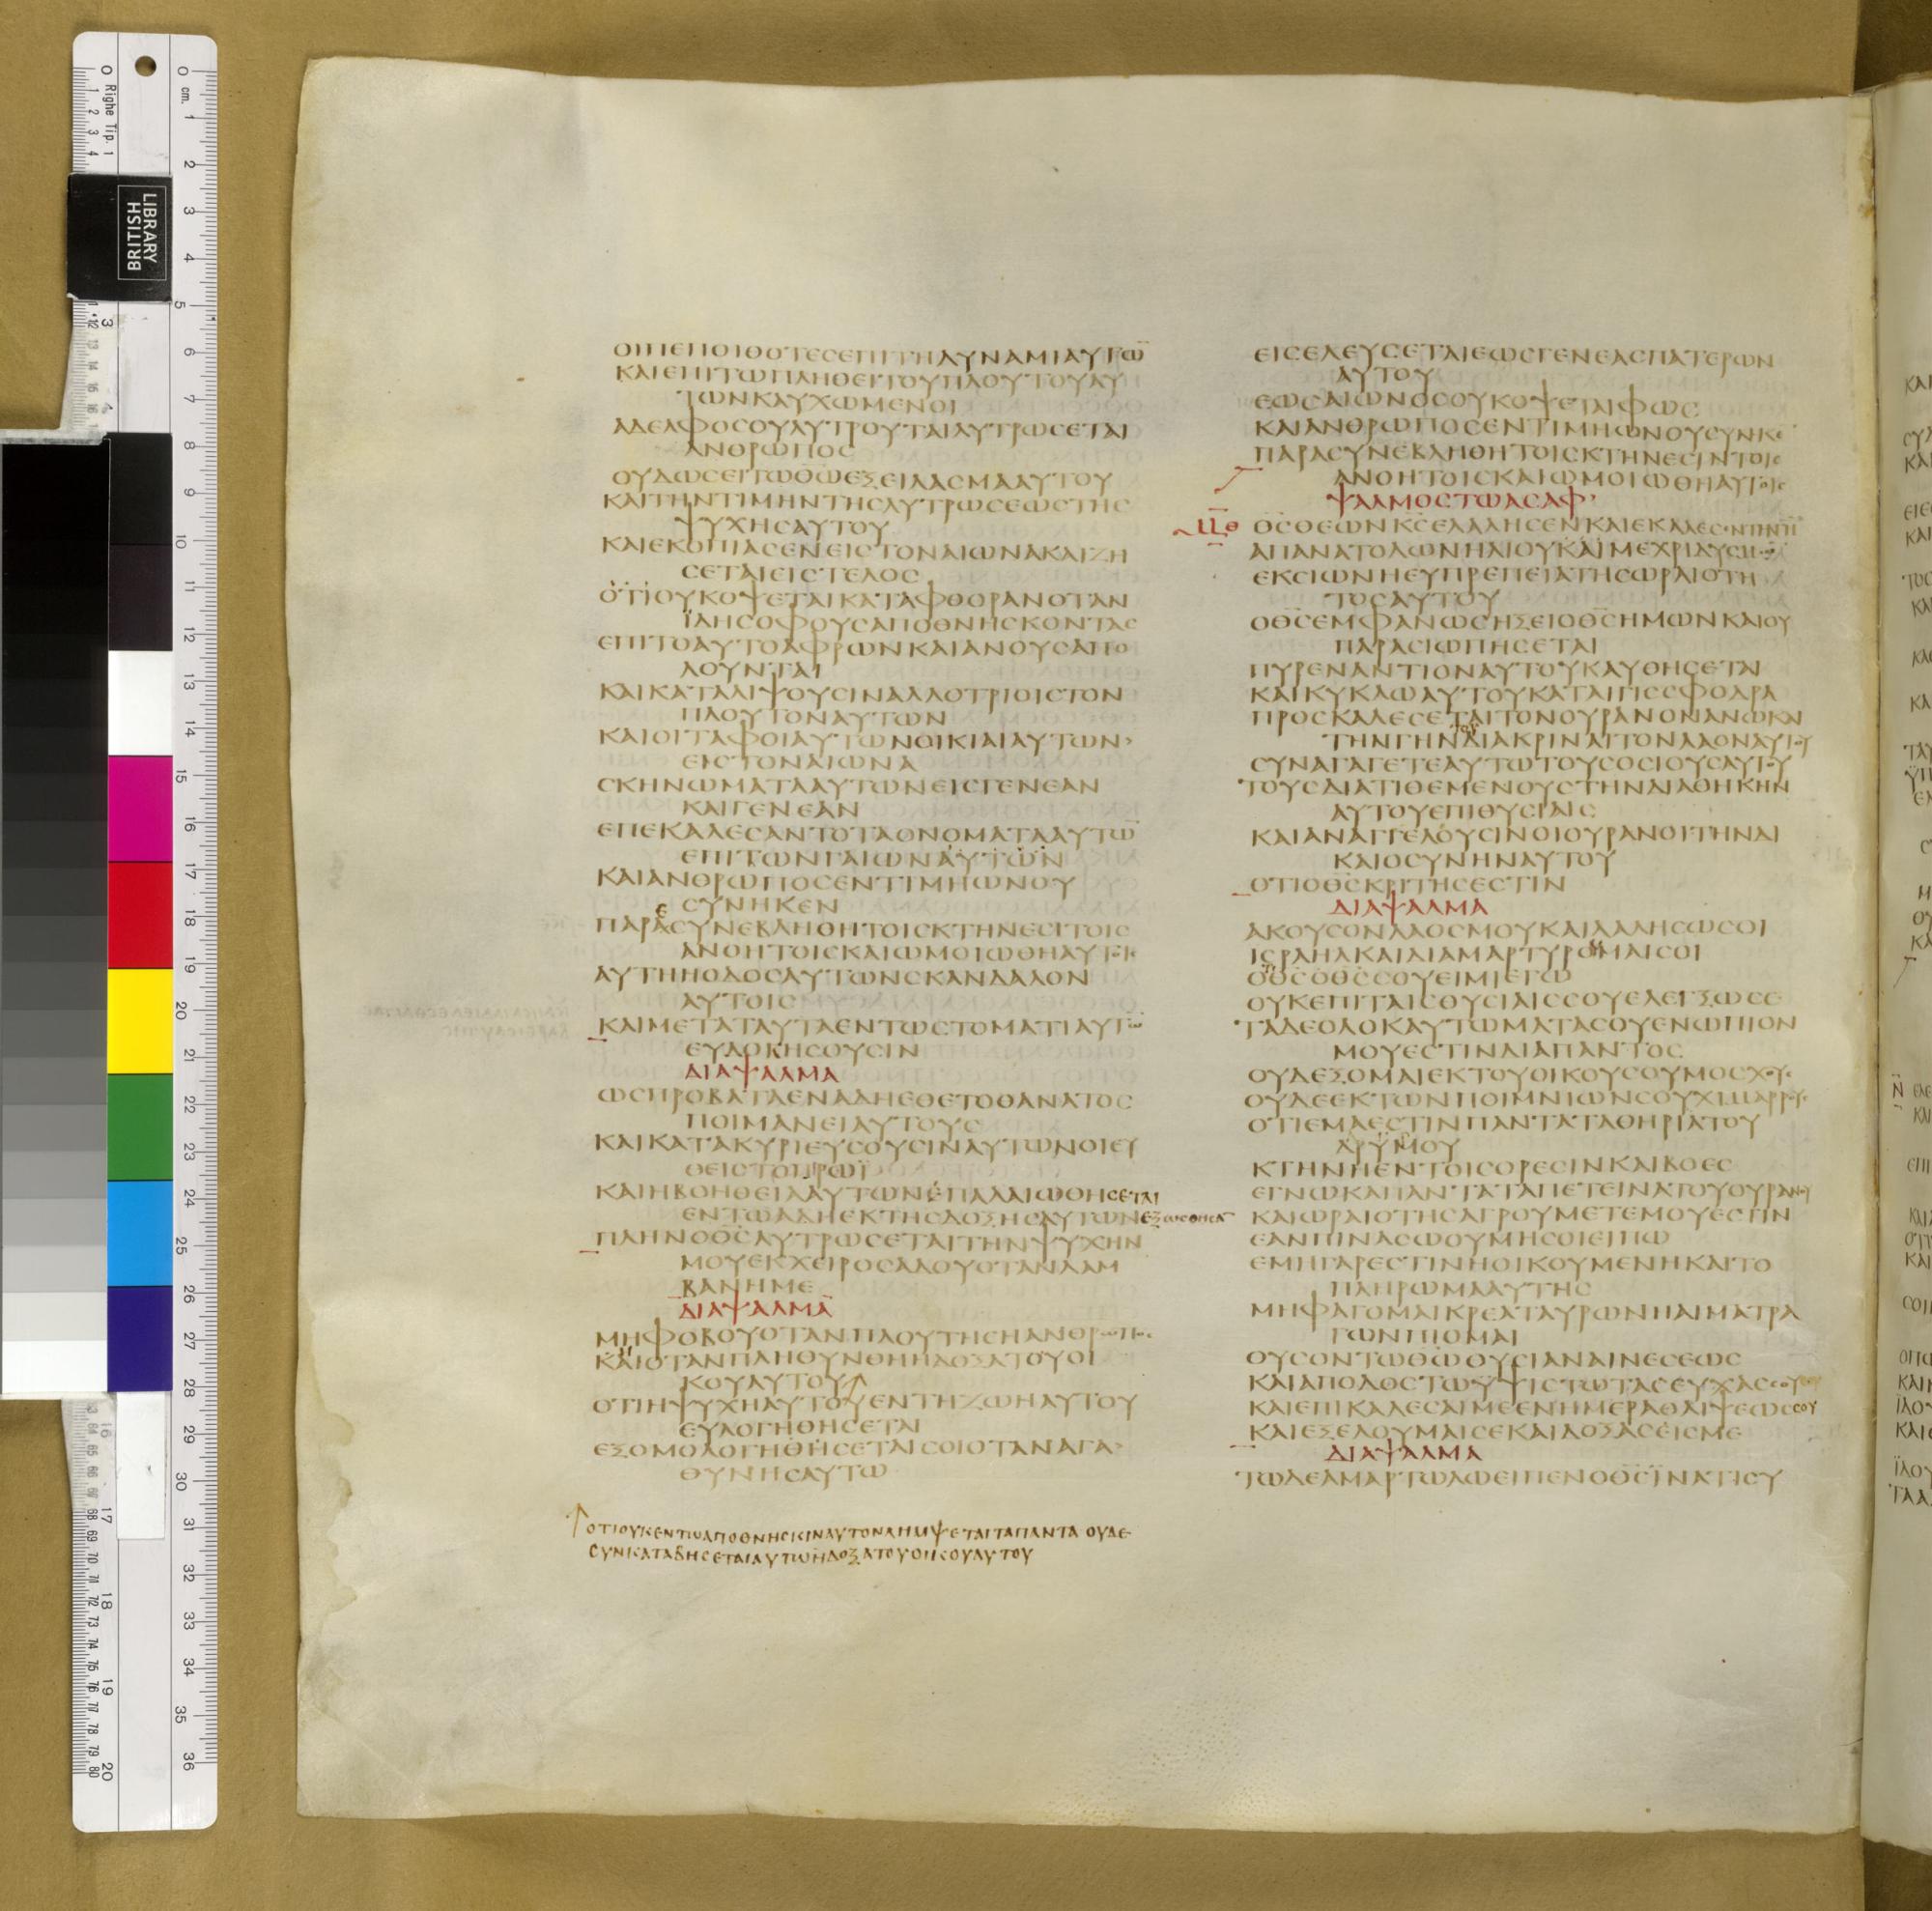 ΟΙΠΕΠΟΙΘΟΤΕϹΕΠΙΤΗΔΥΝΑΜΙΑΥΤΩ̅
ΚΑΙΕΠΙΤΩΠΛΗΘΕΙΤΟΥΠΛΟΥΤΟΥΑΥ
ΤΩΝΚΑΥΧΩΜΕΝΟΙ
ΑΔΕΛΦΟϹΟΥΛΥΤΡΟΥΤΑΙΛΥΤΡΩϹΕΤΑΙ
ΑΝΘΡΩΠΟϹ
ΟΥΔΩϹΕΙΤΩΘ̅Ω̅ΕΞΕΙΛΑϹΜΑΑΥΤΟΥ
ΚΑΙΤΗΝΤΙΜΗΝΤΗϹΛΥΤΡΩϹΕΩϹΤΗϹ
ΨΥΧΗϹΑΥΤΟΥ
ΚΑΙΕΚΟΠΙΑϹΕΝΕΙϹΤΟΝΑΙΩΝΑΚΑΙΖΗ
ϹΕΤΑΙΕΙϹΤΕΛΟϹ
ΟΤΙΟΥΚΟΨΕΤΑΙΚΑΤΑΦΘΟΡΑΝΟΤΑΝ
ΪΔΗϹΟΦΟΥϹΑΠΟΘΝΗϹΚΟΝΤΑϹ
ΕΠΙΤΟΑΥΤΟΑΦΡΩΝΚΑΙΑΝΟΥϹΑΠΟ
ΛΟΥΝΤΑΙ
ΚΑΙΚΑΤΑΛΙΨΟΥϹΙΝΑΛΛΟΤΡΙΟΙϹΤΟΝ
ΠΛΟΥΤΟΝΑΥΤΩΝ
ΚΑΙΟΙΤΑΦΟΙΑΥΤΩΝΟΙΚΙΑΙΑΥΤΩΝ
ΕΙϹΤΟΝΑΙΩΝΑ
ϹΚΗΝΩΜΑΤΑΑΥΤΩΝΕΙϹΓΕΝΕΑΝ
ΚΑΙΓΕΝΕΑΝ
ΕΠΕΚΑΛΕϹΑΝΤΟΤΑΟΝΟΜΑΤΑΑΥΤΩ̅
ΕΠΙΤΩΝΓΑΙΩΝΑΥΤΩΝ
ΚΑΙΑΝΘΡΩΠΟϹΕΝΤΙΜΗΩΝΟΥ
ϹΥΝΗΚΕΝ
ΠΑΡΑϹΥΝΕΒΛΗΘΗΤΟΙϹΚΤΗΝΕϹΙΤΟΙϹ
ΑΝΟΗΤΟΙϹΚΑΙΩΜΟΙΩΘΗΑΥΤΟΙϹ
ΑΥΤΗΗΟΔΟϹΑΥΤΩΝϹΚΑΝΔΑΛΟΝ
ΑΥΤΟΙϹ
ΚΑΙΜΕΤΑΤΑΥΤΑΕΝΤΩϹΤΟΜΑΤΙΑΥΤΩ̅
ΕΥΔΟΚΗϹΟΥϹΙΝ
ΔΙΑΨΑΛΜΑ
ΩϹΠΡΟΒΑΤΑΕΝΑΔΗΕΘΕΤΟΘΑΝΑΤΟϹ
ΠΟΙΜΑΝΕΙΑΥΤΟΥϹ
ΚΑΙΚΑΤΑΚΥΡΙΕΥϹΟΥϹΙΝΑΥΤΩΝΟΙΕΥ
ΘΕΙϹΤΟΠΡΩΪ
ΚΑΙΗΒΟΗΘΕΙΑΑΥΤΩΝΕΠΑΛΑΙΩΘΗϹΕΤΑΙ
ΕΝΤΩΑΔΗΕΚΤΗϹΔΟΞΗϹΑΥΤΩΝΕΞΩϹΘΗϹΑ̅
ΠΛΗΝΟΘ̅Ϲ̅ΛΥΤΡΩϹΕΤΑΙΤΗΝΨΥΧΗΝ
ΜΟΥΕΚΧΕΙΡΟϹΑΔΟΥΟΤΑΝΛΑΜ
ΒΑΝΗΜΕ
ΔΙΑΨΑΛΜΑ
ΜΗΦΟΒΟΥΟΤΑΝΠΛΟΥΤΗϹΗΑΝΘΡΩΠΟϹ
ΚΑΙΟΤΑΝΠΛΗΘΥΝΘΗΗΔΟΞΑΤΟΥΟΙ
ΚΟΥΑΥΤΟΥ↑
ΟΤΙΗΨΥΧΗΑΥΤΟΥΕΝΤΗΖΩΗΑΥΤΟΥ
ΕΥΛΟΓΗΘΗϹΕΤΑΙ
ΕΞΟΜΟΛΟΓΗΘΗϹΕΤΑΙϹΟΙΟΤΑΝΑΓΑ
ΘΥΝΗϹΑΥΤΩ
↑ΟΤΙΟΥΚΕΝΤΩΑΠΟΘΝΗϹΚΙΝΑΥΤΟΝΛΗΜΨΕΤΑΙΤΑΠΑΝΤΑ ΟΥΔΕ
ϹΥΝΚΑΤΑΒΗϹΕΤΑΙΑΥΤΩΗΔΟΞΑΤΟΥΟΙΚΟΥΑΥΤΟΥ
ΕΙϹΕΛΕΥϹΕΤΑΙΕΩϹΓΕΝΕΑϹΠΑΤΕΡΩΝ
ΑΥΤΟΥ
ΕΩϹΑΙΩΝΟϹΟΥΚΟΨΕΤΑΙΦΩϹ
ΚΑΙΑΝΘΡΩΠΟϹΕΝΤΙΜΗΩΝΟΥϹΥΝΗΚΕ̅
ΠΑΡΑϹΥΝΕΒΛΗΘΗΤΟΙϹΚΤΗΝΕϹΙΝΤΟΙϹ
ΑΝΟΗΤΟΙϹΚΑΙΩΜΟΙΩΘΗΑΥΤΟΙϹ
ΨΑΛΜΟϹΤΩΑϹΑΦ
ΜΘ
ΟΘ̅Ϲ̅ΘΕΩΝΚ̅Ϲ̅ΕΛΑΛΗϹΕΝΚΑΙΕΚΑΛΕϹΕΝΤΗΝΓΗ̅
ΑΠΑΝΑΤΟΛΩΝΗΛΙΟΥΚΑΙΜΕΧΡΙΔΥϹΜΩ̅
ΕΚϹΙΩΝΗΕΥΠΡΕΠΕΙΑΤΗϹΩΡΑΙΟΤΗ
ΤΟϹΑΥΤΟΥ
ΟΘ̅Ϲ̅ΕΜΦΑΝΩϹΗΞΕΙΟΘ̅Ϲ̅ΗΜΩΝΚΑΙΟΥ
ΠΑΡΑϹΙΩΠΗϹΕΤΑΙ
ΠΥΡΕΝΑΝΤΙΟΝΑΥΤΟΥΚΑΥΘΗϹΕΤΑΙ
ΚΑΙΚΥΚΛΩΑΥΤΟΥΚΑΤΑΙΓΙϹϹΦΟΔΡΑ
ΠΡΟϹΚΑΛΕϹΕΤΑΙΤΟΝΟΥΡΑΝΟΝΑΝΩΚΑΙ
ΤΗΝΓΗΝΔΙΑΚΡΙΝΑΙΤΟΝΛΑΟΝΑΥΤΟΥ
ϹΥΝΑΓΑΓΕΤΕΑΥΤΩΤΟΥϹΟϹΙΟΥϹΑΥΤΟΥ
ΤΟΥϹΔΙΑΤΙΘΕΜΕΝΟΥϹΤΗΝΔΙΑΘΗΚΗΝ
ΑΥΤΟΥΕΠΙΘΥϹΙΑΙϹ
ΚΑΙΑΝΑΓΓΕΛΟΥϹΙΝΟΙΟΥΡΑΝΟΙΤΗΝΔΙ
ΚΑΙΟϹΥΝΗΝΑΥΤΟΥ
ΟΤΙΟΘ̅Ϲ̅ΚΡΙΤΗϹΕϹΤΙΝ
ΔΙΑΨΑΛΜΑ
ΑΚΟΥϹΟΝΛΑΟϹΜΟΥΚΑΙΛΑΛΗϹΩϹΟΙ
ΙϹΡΑΗΛΚΑΙΔΙΑΜΑΡΤΥΡΟΜΑΙϹΟΙ
ΟΘ̅Ϲ̅ΟΘ̅Ϲ̅ϹΟΥΕΙΜΙΕΓΩ
ΟΥΚΕΠΙΤΑΙϹΘΥϹΙΑΙϹϹΟΥΕΛΕΓΞΩϹΕ
ΤΑΔΕΟΛΟΚΑΥΤΩΜΑΤΑϹΟΥΕΝΩΠΙΟΝ
ΜΟΥΕϹΤΙΝΔΙΑΠΑΝΤΟϹ
ΟΥΔΕΞΟΜΑΙΕΚΤΟΥΟΙΚΟΥϹΟΥΜΟϹΧΟΥϹ
ΟΥΔΕΕΚΤΩΝΠΟΙΜΝΙΩΝϹΟΥΧΙΜΑΡΡΟΥϹ
ΟΤΙΕΜΑΕϹΤΙΝΠΑΝΤΑΤΑΘΗΡΙΑΤΟΥ
ΑΓΡΥΜΟΥ
ΚΤΗΝΗΕΝΤΟΙϹΟΡΕϹΙΝΚΑΙΒΟΕϹ
ΕΓΝΩΚΑΠΑΝΤΑΤΑΠΕΤΕΙΝΑΤΟΥΟΥΡΑΝΟΥ
ΚΑΙΩΡΑΙΟΤΗϹΑΓΡΟΥΜΕΤΕΜΟΥΕϹΤΙΝ
ΕΑΝΠΙΝΑϹΩΟΥΜΗϹΟΙΕΙΠΩ
ΕΜΗΓΑΡΕϹΤΙΝΗΟΙΚΟΥΜΕΝΗΚΑΙΤΟ
ΠΛΗΡΩΜΑΑΥΤΗϹ
ΜΗΦΑΓΟΜΑΙΚΡΕΑΤΑΥΡΩΝΗΑΙΜΑΤΡΑ
ΓΩΝΠΙΟΜΑΙ
ΘΥϹΟΝΤΩΘ̅Ω̅ΘΥϹΙΑΝΑΙΝΕϹΕΩϹ
ΚΑΙΑΠΟΔΟϹΤΩΥΨΙϹΤΩΤΑϹΕΥΧΑϹϹΟΥ
ΚΑΙΕΠΙΚΑΛΕϹΑΙΜΕΕΝΗΜΕΡΑΘΛΙΨΕΩϹϹΟΥ
ΚΑΙΕΞΕΛΟΥΜΑΙϹΕΚΑΙΔΟΞΑϹΕΙϹΜΕ
ΔΙΑΨΑΛΜΑ
ΤΩΔΕΑΜΑΡΤΩΛΩΕΙΠΕΝΟΘ̅Ϲ̅ΪΝΑΤΙϹΥ
BRITISH
LIBRARY
Righe Tip. 1
cm.